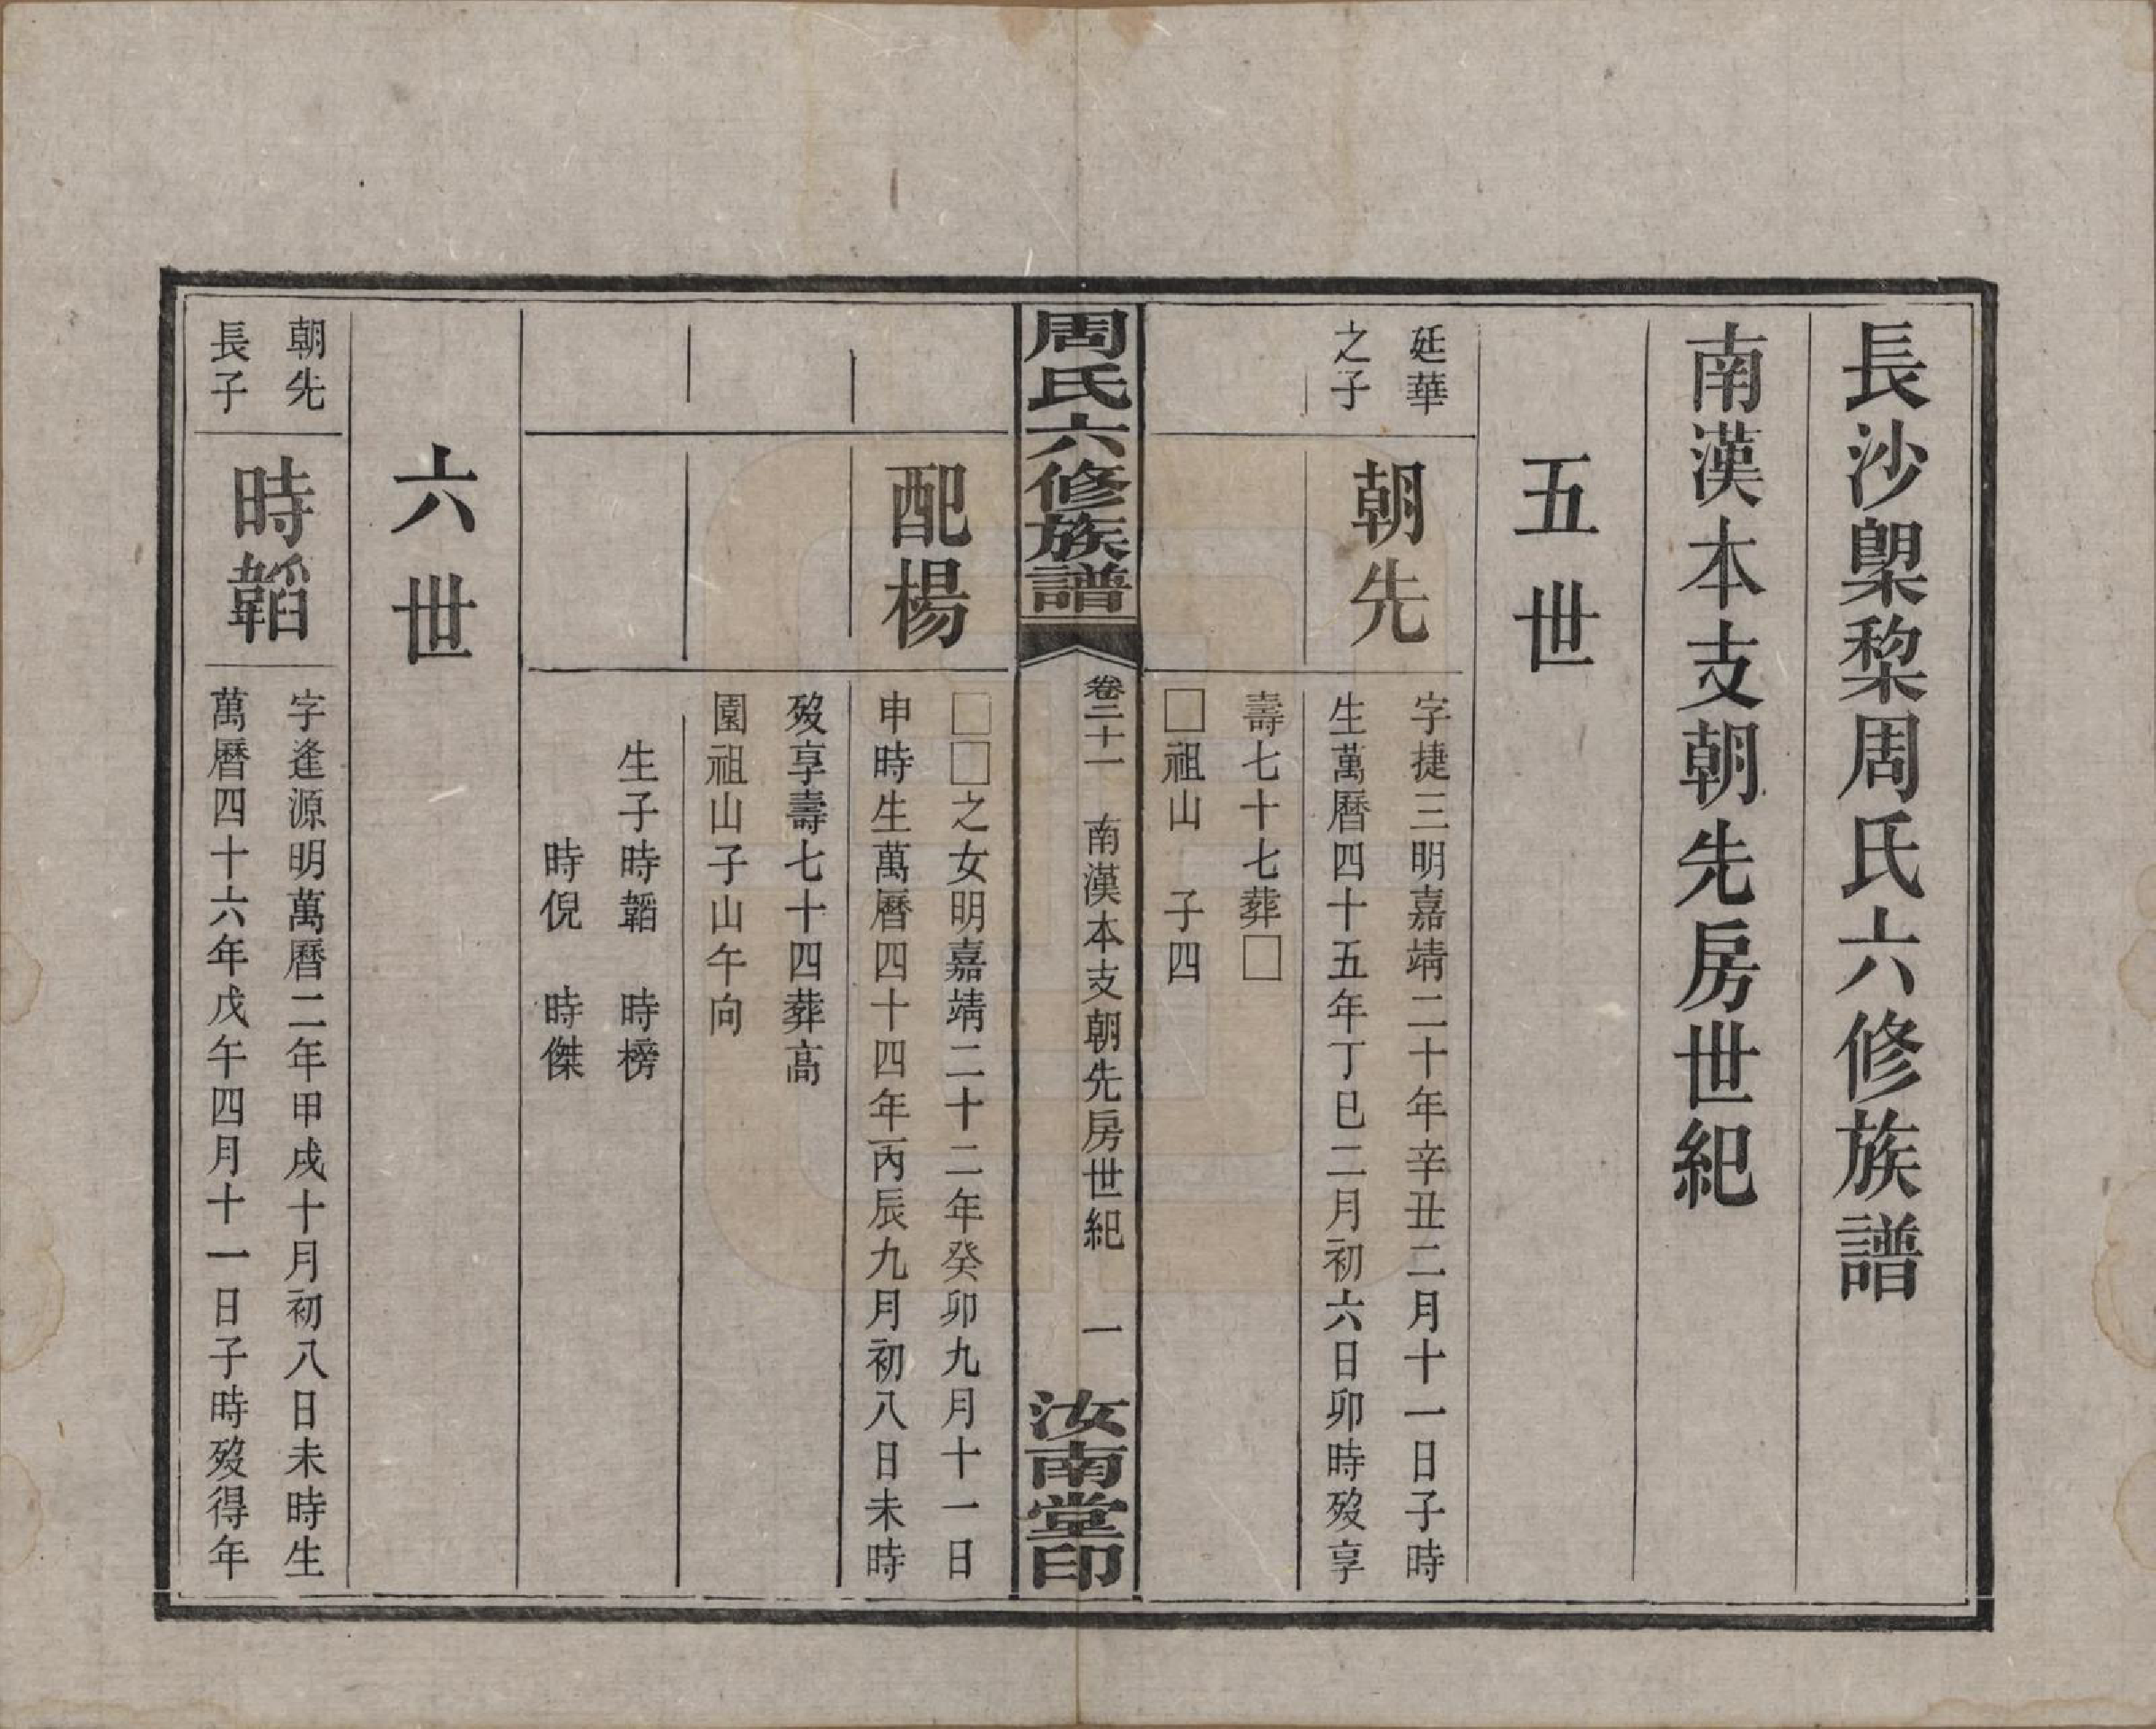 長沙㮛棃周氏六修族譜
南漢本支朝先房世紀
五世
廷華
之子
朝先
字捷三明嘉靖二十年辛丑二月十一日子時
生萬曆四十五年丁巳二月初六日卯時歿享
壽七十七葬□
□祖山　子四
周氏六修族譜
卷二十一　南漢本支朝先房世紀　一
汝南堂印
配楊
□□之女明嘉靖二十二年癸卯九月十一日
申時生萬曆四十四年丙辰九月初八日未時
歿享壽七十四葬高
園祖山子山午向
生子時韜　時榜
時倪　時傑
六世
朝先
長子
時韜
字逢源明萬曆二年甲戌十月初八日未時生
萬曆四十六年戊午四月十一日子時歿得年